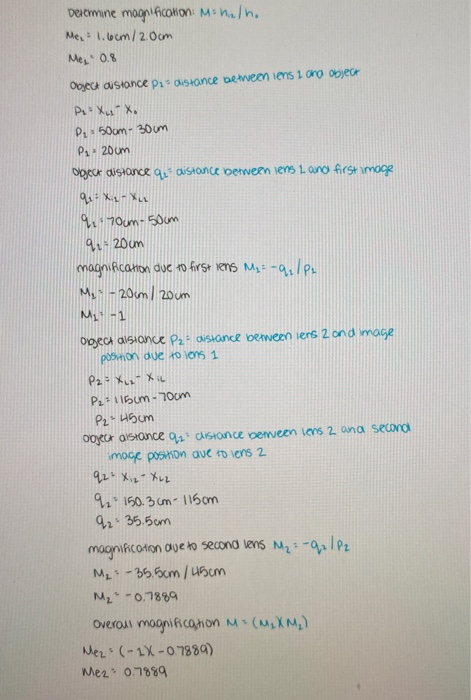 Determine magnification: M = hi2/ho
Me1 = 1.6cm/2.0cm
Me1 = 0.8
Object distance p1 = distance between lens 1 and object
P1 = XL1 - Xo
P1 = 50cm - 30cm
P1 = 20cm
Object distance q1 = distance between lens 1 and first image
q1 = Xi1 - XL1
q1 = 70cm - 50cm
q1 = 20cm
magnification due to first lens M1 = -q1/P1
M1 = -20cm/20cm
M1 = -1
Object distance P2 = distance between lens 2 and image
position due to lens 1
P2 = XL2 - Xi1
P2 = 115cm - 70cm
P2 = 45cm
Object distance q2 = distance between lens 2 and second
image position due to lens 2
q2 = Xi2 - XL2
q2 = 150.3cm - 115cm
q2 = 35.5cm
magnification due to second lens M2 = -q2/P2
M2 = -35.5cm/45cm
M2 = -0.7889
Overall magnification M = (M1)(M2)
Me2 = (-1)(-0.7889)
Me2 = 0.7889